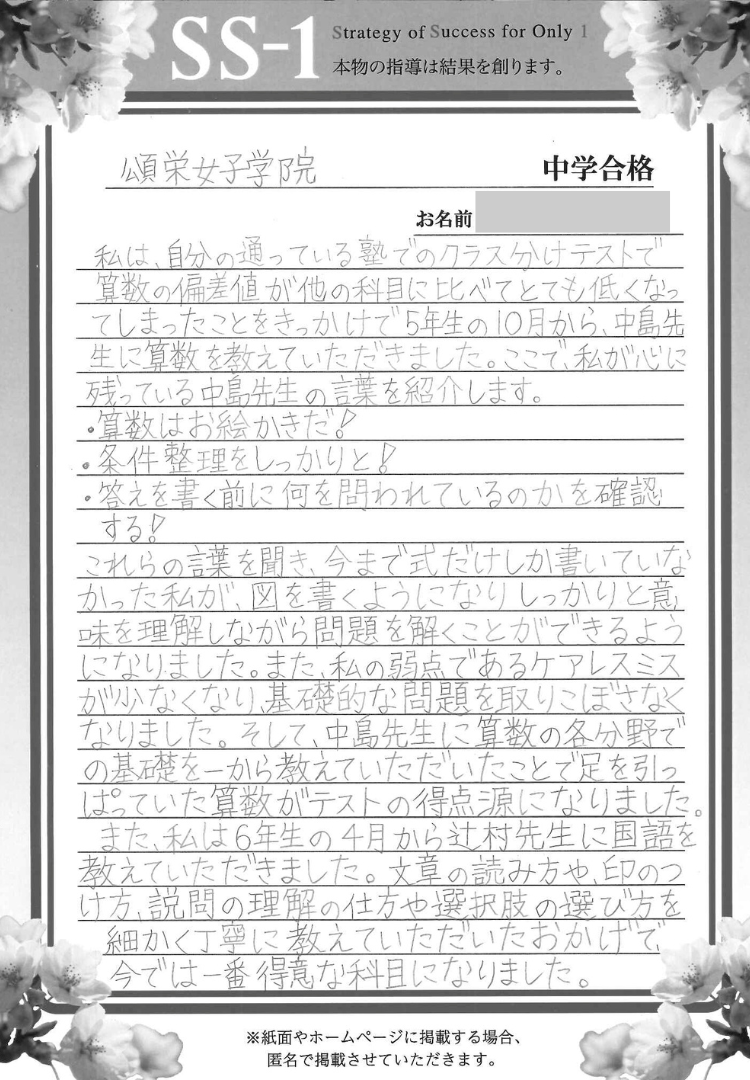 SS-1
Strategy of Success for Only 1
本物の指導は結果を創ります。
頌栄女子学院 中学合格
お名前
私は、自分の通っている塾でのクラス分けテストで
算数の偏差値が他の科目に比べてとても低くなっ
てしまったことをきっかけで5年生の10月から、中島先
生に算数を教えていただきました。ここで、私が心に
残っている中島先生の言葉を紹介します。
・算数はお絵かきだ!
・条件整理をしっかりと!
・答えを書く前に何を問われているのかを確認
する!
これらの言葉を聞き、今まで式だけしか書いていな
かった私が、図を書くようになりしっかりと意
味を理解しながら問題を解くことができるよう
になりました。また、私の弱点であるケアレスミス
が少なくなり、基礎的な問題を取りこぼさなく
なりました。そして、中島先生に算数の各分野で
の基礎を一から教えていただいたことで足を引っ
ぱっていた算数がテストの得点源になりました。
また、私は6年生の4月から辻村先生に国語を
教えていただきました。文章の読み方や、印のつ
け方、説問の理解の仕方や選択肢の選び方を
細かく丁寧に教えていただいたおかげで
今では一番得意な科目になりました。
※紙面やホームページに掲載する場合、
匿名で掲載させていただきます。